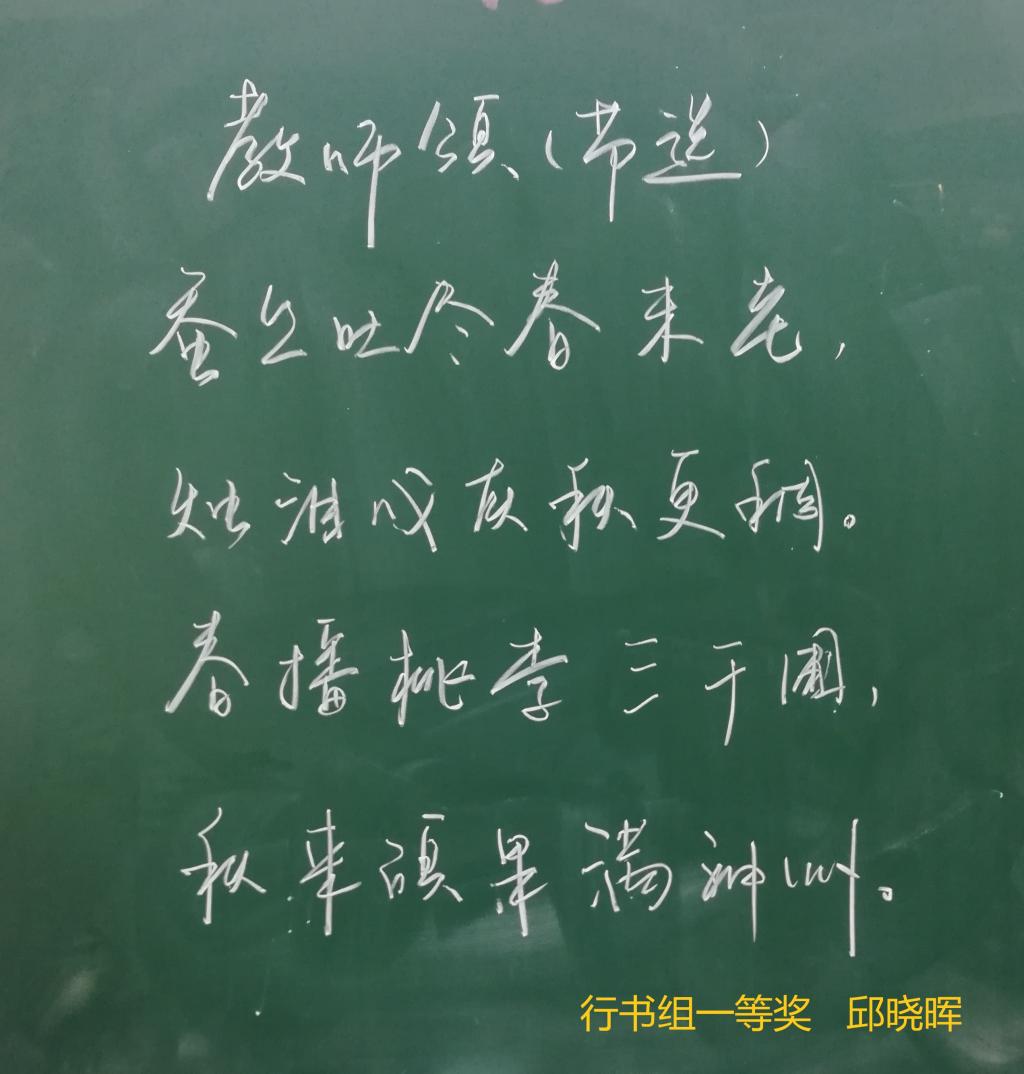 教师颂（节选）
蚕丝吐尽春未老，
烛泪成灰秋更稠。
春播桃李三千圃，
秋来硕果满神州。
行书组一等奖 邱晓晖